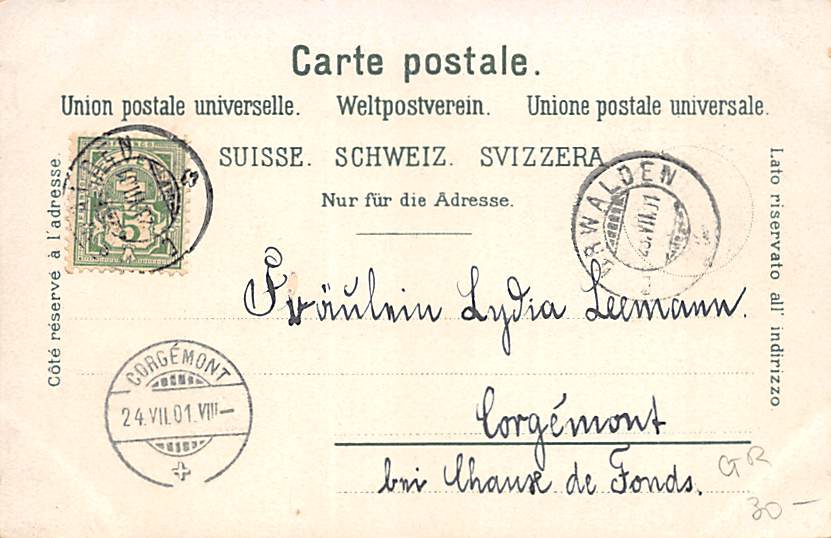 Carte postale.
Union postale universelle. Weltpostverein. Unione postale universale.
SUISSE. SCHWEIZ. SVIZZERA
Nur für die Adresse.
Côté réservé à l'adresse.
Lato riservato all' indirizzo
5
RWALDEN
23.VII.01
Fräulein Lydia Leemann.
CORGÉMONT
24.VII.01.VIII—
Corgémont
bei Chaux de Fonds.
GR
30—